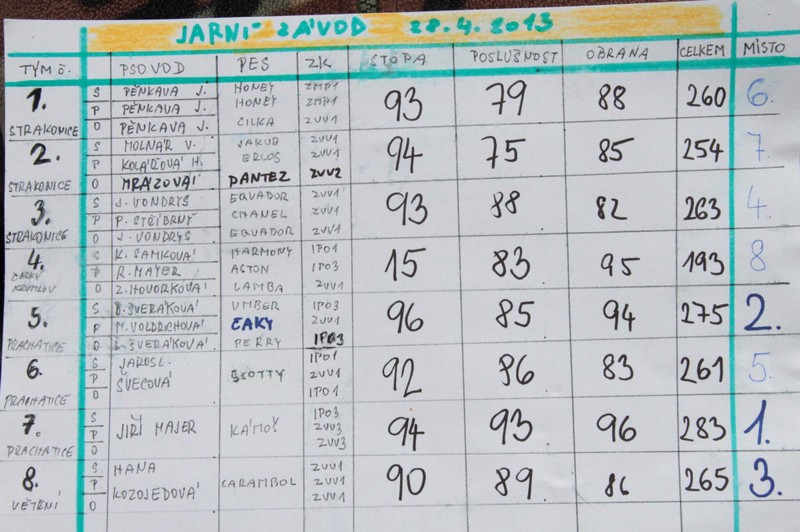 JARNÍ ZÁVOD 28.4.2013
TÝM č. PSOVOD PES ZK STOPA POSLUŠNOST OBRANA CELKEM MÍSTO
1. S PĚNKAVA J. HONEY ZMP1 93 79 88 260 6.
P PĚNKAVA J. HONEY ZMP1
STRAKONICE O PĚNKAVA J. CILKA ZVV1
2. S MOLNÁR V. JAKUB ZVV1 94 75 85 254 7.
P KOLÁŘOVÁ H. ERLOS ZVV1
STRAKONICE O MRÁZOVÁ DANTEZ ZVV2
3. S J. VONDRYS EQUADOR ZVV1 93 88 82 263 4.
P P. STŘÍBRNÝ CHANEL ZVV1
STRAKONICE O J. VONDRYS EQUADOR ZVV1
4. S K. SAMKOVÁ HARMONY IPO1 15 83 95 193 8
P R. MAYER ASTON IPO3
ČESKÝ KRUMLOV O Z. HOVORKOVÁ LAMBA ZVV1
5. S ŠVERÁKOVÁ UMBER IPO3 96 85 94 275 2.
P M. VOLDŘICHOVÁ ČAKY ZVV1
PRACHATICE O ŠVERÁKOVÁ PERRY IPO3
6. S JAROSL. IPO1 92 86 83 261 5.
P ŠVECOVÁ SCOTTY ZVV1
PRACHATICE O IPO1
7. S JIŘÍ MAJER KÁMOŠ IPO3 94 93 96 283 1.
P ZVV3
PRACHATICE O ZVV3
8. S HANA CARAMBOL ZVV1 90 89 86 265 3.
P KOZOJEDOVÁ ZVV1
VĚTŘNÍ O ZVV1